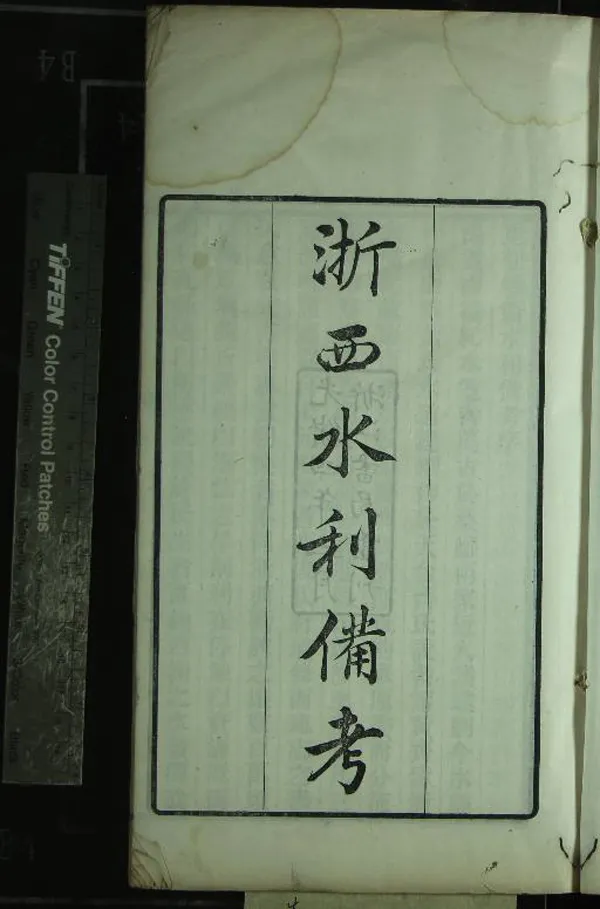 浙西水利備考
B4
TIFFEN Color Control Patches